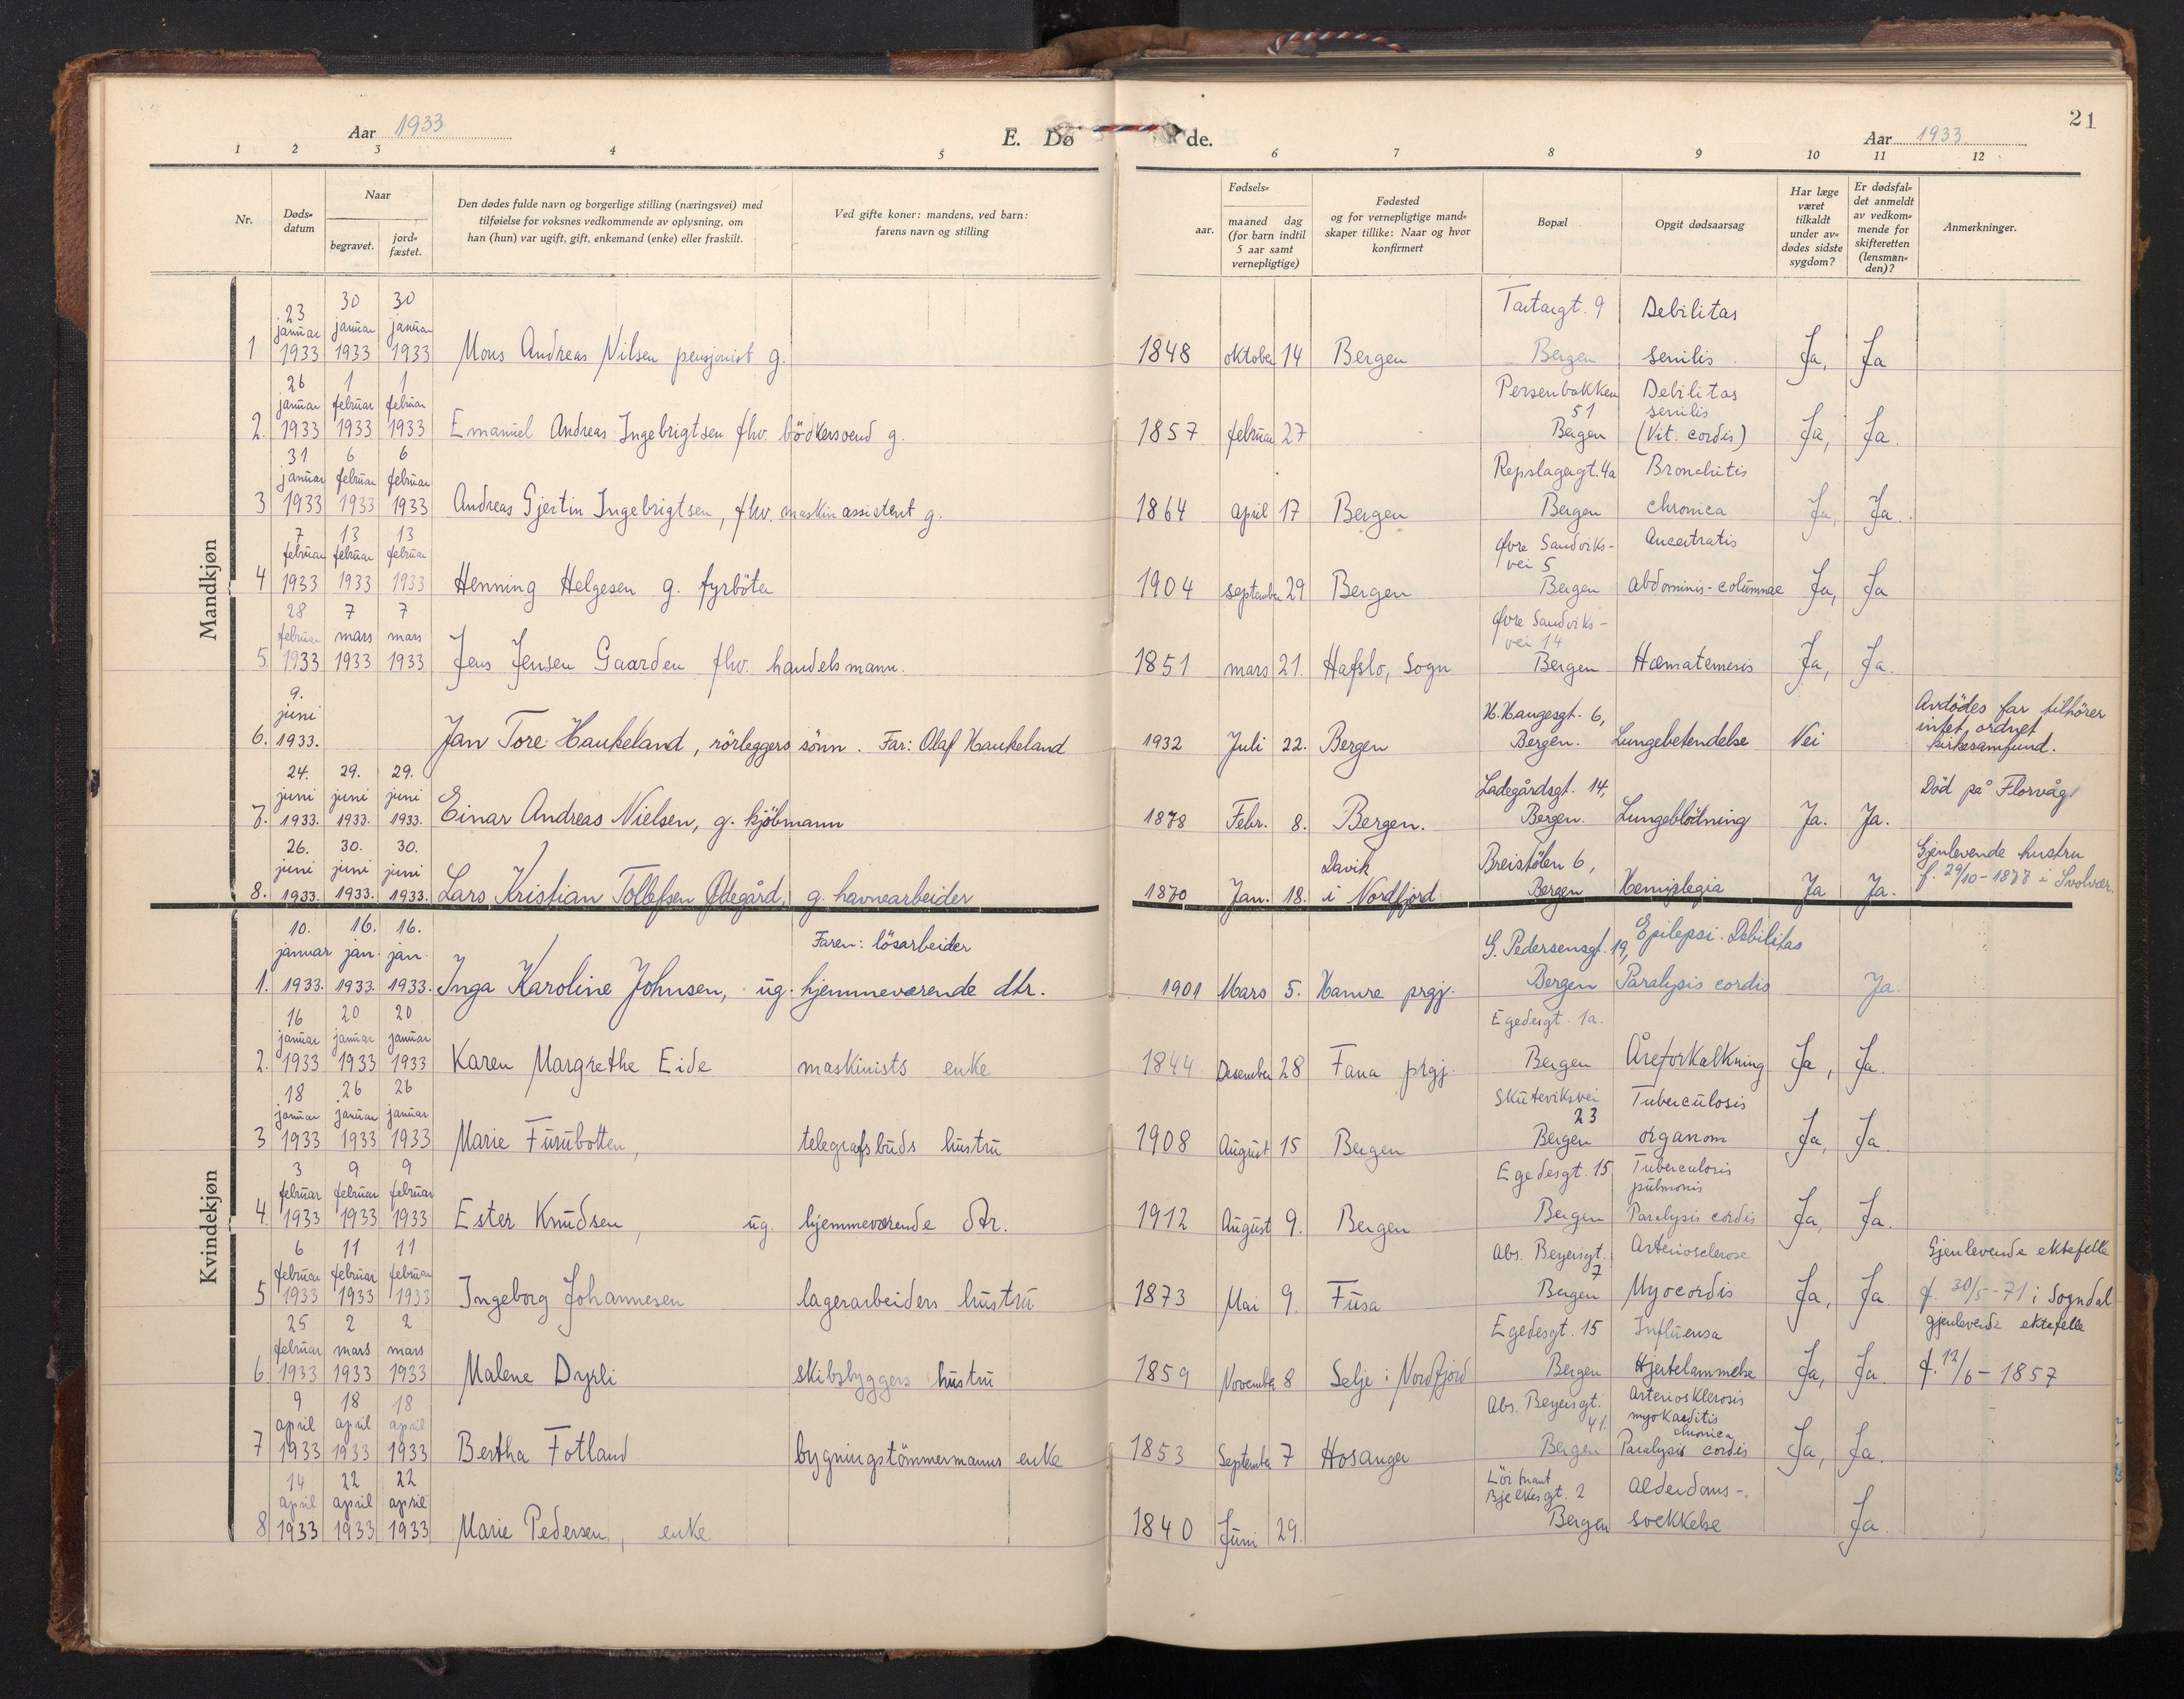 21
Aar 1933
E. Dø de.
Aar 1933
1 2 3 4 5 6 7 8 9 10 11 12
Nr.
Døds-
datum
Naar
begravet.
jord-
fæstet.
Den dødes fulde navn og borgerlige stilling (næringsvei) med
tilføielse for voksnes vedkommende av oplysning, om
han (hun) var ugift, gift, enkemand (enke) eller fraskilt.
Ved gifte koner: mandens, ved barn:
farens navn og stilling
Fødsels-
aar.
maaned dag
(for barn indtil
5 aar samt
vernepligtige)
Fødested
og for vernepligtige mand-
skaper tillike: Naar og hvor
konfirmert
Bopæl
Opgit dødsaarsag
Har læge
været
tilkaldt
under av-
dødes sidste
sygdom?
Er dødsfal-
det anmeldt
av vedkom-
mende for
skifteretten
(lensman-
den)?
Anmerkninger.
Mandkjøn
23 30 30 Tartargt. 9 Debilitas
januar januar januar
1 1933 1933 1933 Mons Andreas Nilsen pensjonist g. 1848 oktober 14 Bergen Bergen senilis. Ja, Ja
26 1 1 Persenbakken Debilitas
januar februar februar 51 senilis
2. 1933 1933 1933 Emanuel Andreas Ingebrigtsen fhv. bödkersvend g. 1857 februar 27 Bergen (Vit. cordis) Ja, Ja.
31 6 6 Repslagergt. 4a Bronchitis
januar februar februar
3 1933 1933 1933 Andreas Gjertin Ingebrigtsen, fhv. maskinassistent g. 1864 april 17 Bergen Bergen chronica Ja, Ja.
7 13 13 Øvre Sandviks-
februar februar februar vei 5
4 1933 1933 1933 Henning Helgesen g. fyrböter 1904 september 29 Bergen Bergen abdominis-columnae Ja, Ja
28 7 7 Øvre Sandviks-
februar mars mars vei 14
5. 1933 1933 1933 Jens Jensen Gaarden fhv. handelsmann. 1851 mars 21. Hafslo, Sogn Bergen Hæmatemesis Ja, Ja.
9. H. Haugesgt. 6, Avdödes far tilhörer
juni intet ordnet
6. 1933. Jan Tore Haukeland, rörleggers sönn. Far: Olaf Haukeland 1932 Juli 22. Bergen Bergen. Lungebetendelse Nei kirkesamfund.
24. 29. 29. Ladegårdsgt. 14, Död på Florvåg.
juni juni juni
7. 1933. 1933. 1933. Einar Andreas Nielsen, g. kjöbmann 1878 Febr. 8. Bergen. Bergen. Lungeblödning Ja. Ja.
26. 30. 30. Davik Breistölen 6, Gjenlevende hustru
juni juni juni f. 29/10-1877 i Svolvær.
8. 1933. 1933. 1933. Lars Kristian Tollefsen Ødegård, g. havnearbeider 1870 Jan. 18. i Nordfjord Bergen Hemiplegia Ja Ja.
Kvindekjøn
10. 16. 16. Faren: lösarbeider G. Pedersensgt. 19, Epilepsi. Debilitas
januar jan. jan.
1. 1933. 1933. 1933. Inga Karoline Johnsen, ug. hjemmeværende dtr. 1901 Mars 5. Hamre prgj. Bergen Paralysis cordis Ja.
16 20 20 Egedesgt. 1a.
januar januar januar
2. 1933 1933 1933 Karen Margrethe Eide maskinists enke 1844 Desember 28 Fana prgj. Bergen Åreforkalkning Ja, Ja.
18 26 26 Skuteviksvei Tuberculosis
januar januar januar 23
3 1933 1933 1933 Marie Furubotten, telegrafsbuds hustru 1908 August 15 Bergen Bergen organom Ja, Ja
3 9 9 Egedesgt. 15 Tuberculosis
februar februar februar pulmonis
4. 1933 1933 1933 Ester Knudsen, ug. hjemmeværende dtr. 1912 August 9. Bergen Bergen Paralysis cordis Ja, Ja.
6 11 11 Abs. Beyersgt. Arteriosclerose Gjenlevende ektefelle
februar februar februar 7
5 1933 1933 1933 Ingeborg Johannesen lagerarbeiders hustru 1873 Mai 9. Fusa Bergen Myocordis Ja, Ja. f. 30/5-71 i Sogndal
25 2 2 Egedesgt. 15 Influensa gjenlevende ektefelle
februar mars mars
6 1933 1933 1933 Malene Dyrli skibsbyggers hustru 1859 November 8 Selje i Nordfjord Bergen Hjertelammelse Ja, Ja. f. 12/6-1857
9 18 18 Abs. Beyersgt. Arteriosklerosis
april april april 41. myokarditis chronica
7 1933 1933 1933 Bertha Fotland bygningstömmermanns enke 1853 September 7 Hosanger Bergen Paralysis cordis Ja, Ja.
14 22 22 Löitnant Alderdoms-
april april april Bjelkesgt. 2
8 1933 1933 1933 Marie Pedersen, enke 1840 Juni 29. Bergen svekkelse Ja.